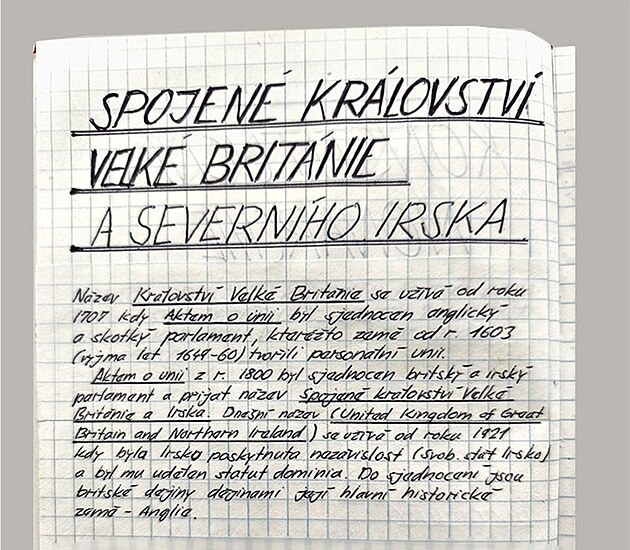 SPOJENÉ KRÁLOVSTVÍ
VELKÉ BRITÁNIE
A SEVERNÍHO IRSKA
Název Království Velké Británie se užívá od roku
1707 kdy Aktem o unii byl sjednocen anglický
a skotský parlament, kteréžto země od r. 1603
(vyjma let 1649-60) tvořili personální unii.
Aktem o unii z r. 1800 byl sjednocen britský a irský
parlament a přijat název Spojené království Velké
Británie a Irska. Dnešní název (United Kingdom of Great
Britain and Northern Ireland) se užívá od roku 1921
kdy byla Irsku poskytnuta nezávislost (Svob. stát Irsko)
a byl mu udělen statut dominia. Do sjednocení jsou
britské dějiny dějinami její hlavní historické
země - Anglie.